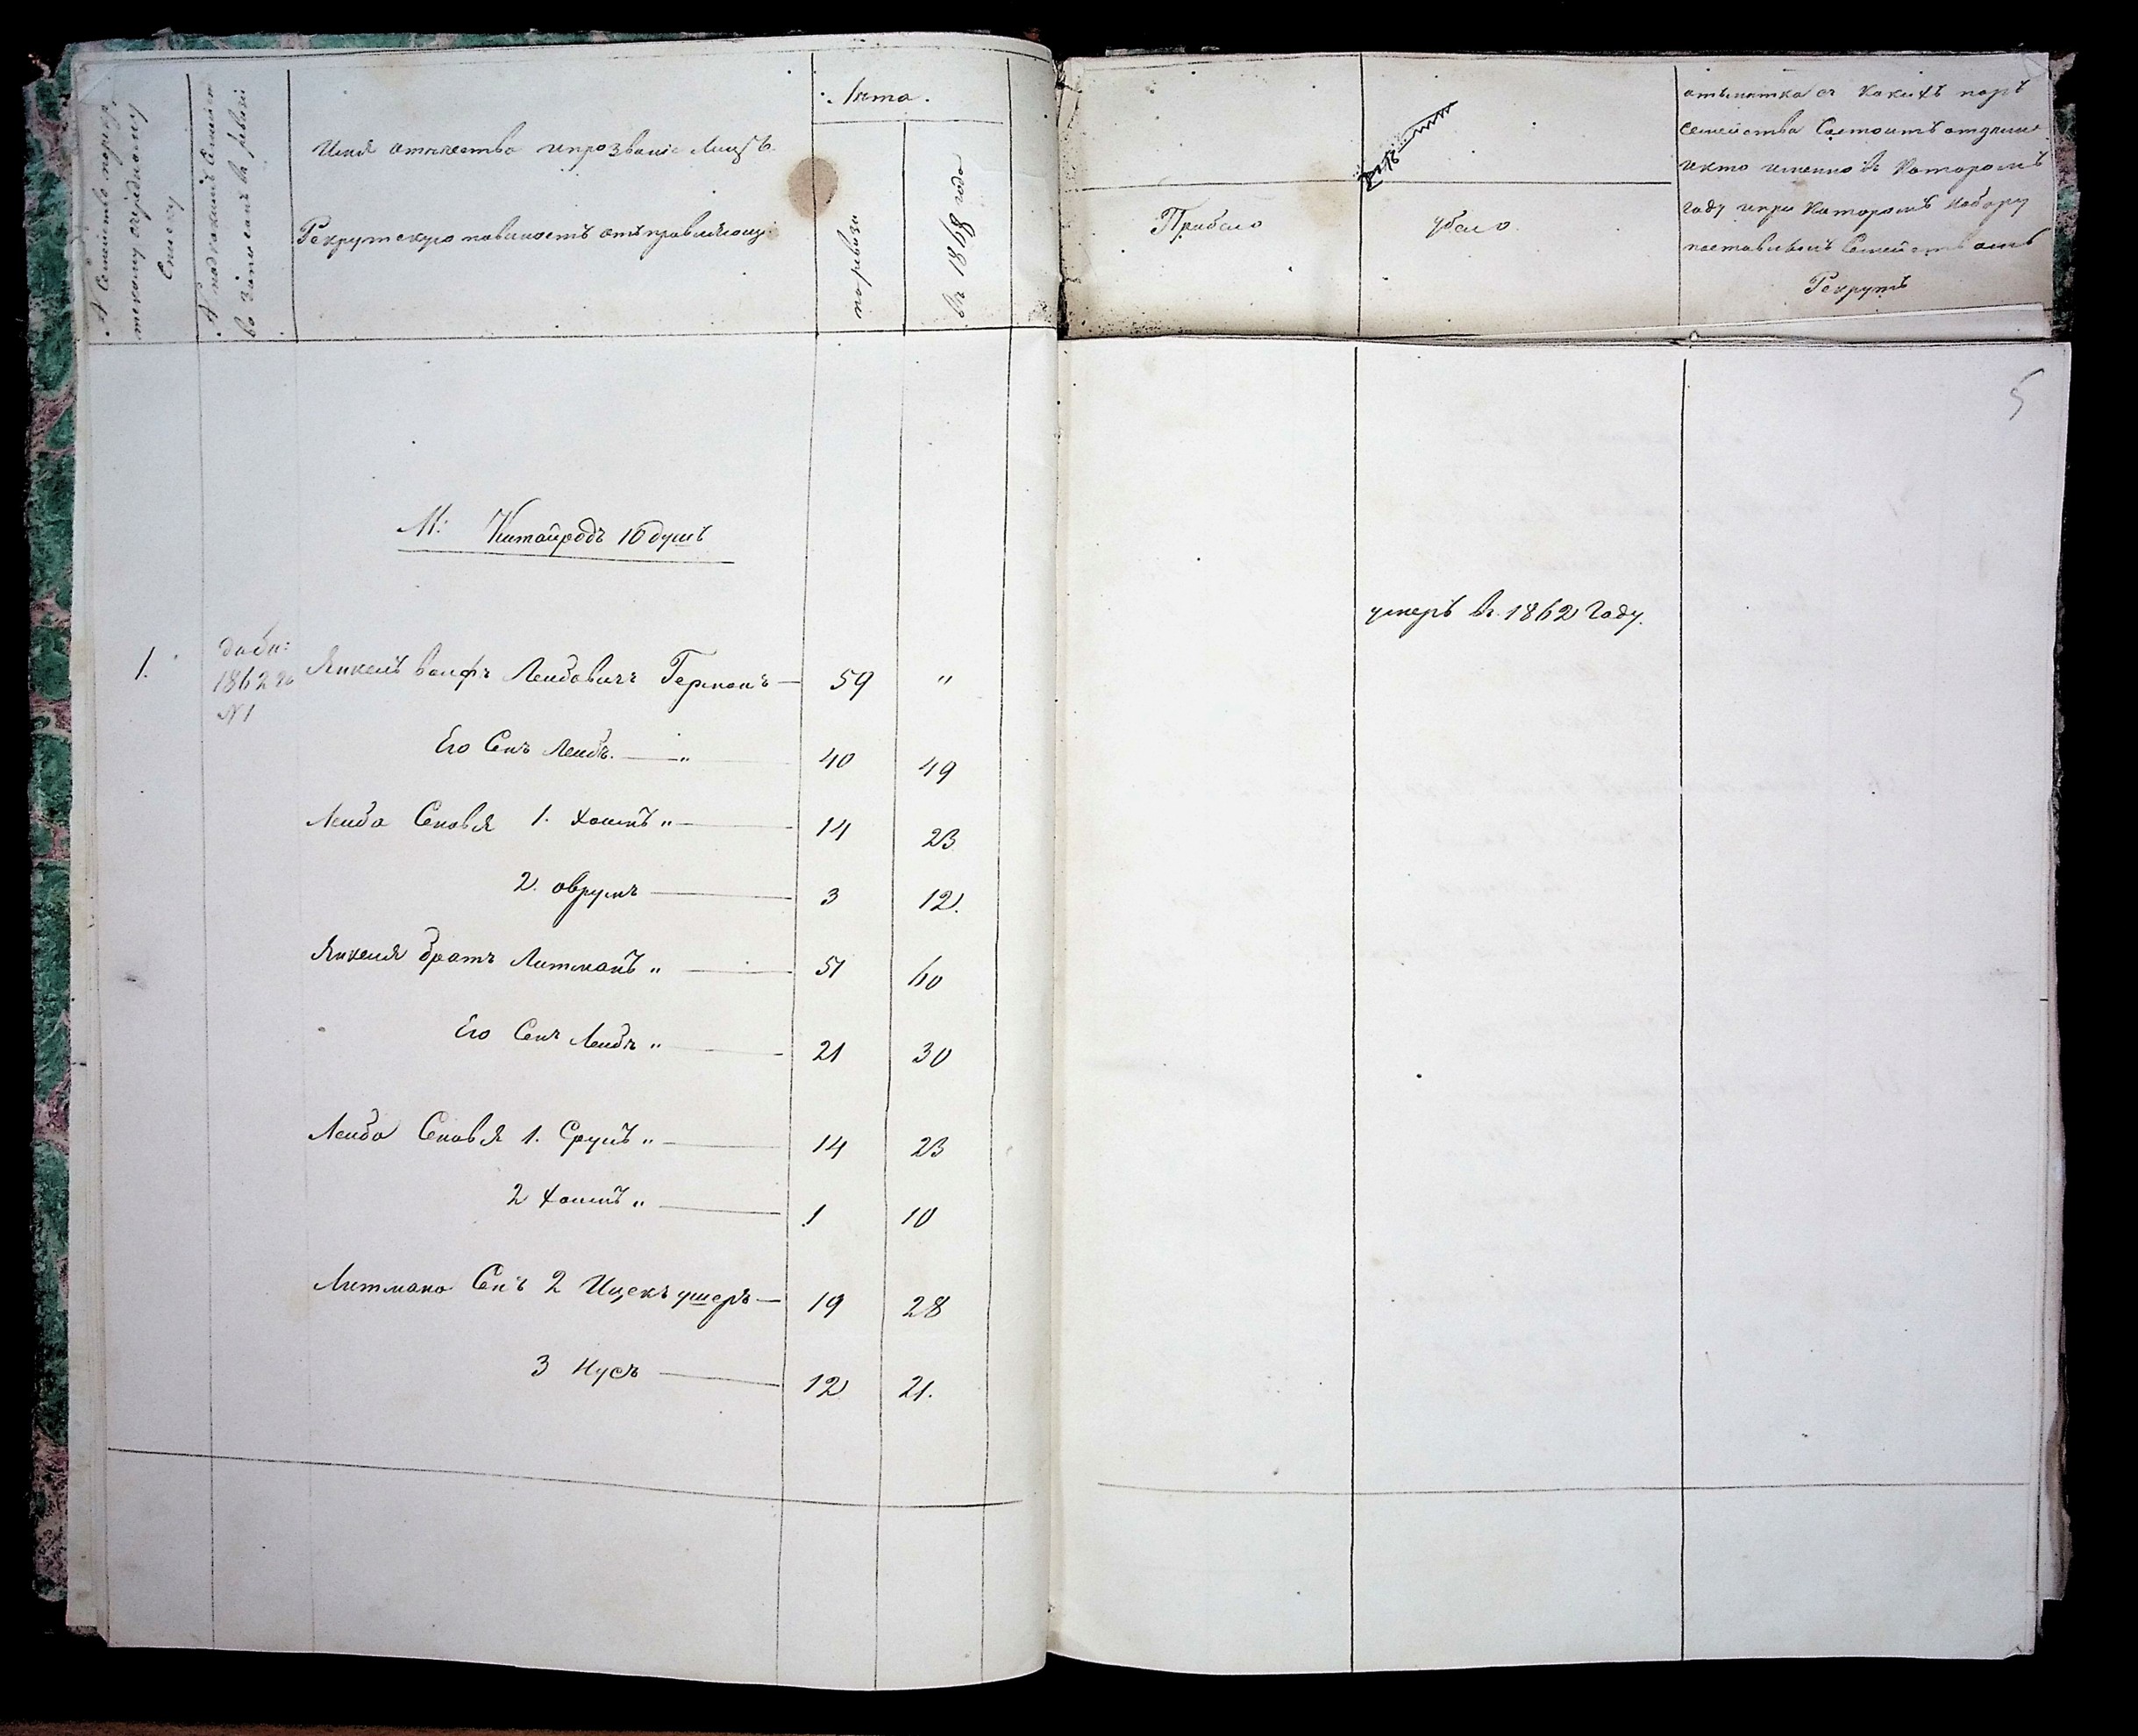 № Семейства по рекру
тскому очередному
Списку
№ под какимъ Семейст
во записанъ въ ревизiи
Имя отчество и прозванiе Лицъ.
Рекрутскую повиность отправляющ
Лета.
по ревизи
въ 1868 года
Прибыло
убыло.
отъметка съ какихъ поръ
семейства Состоитъ отдельн
и кто именно въ Которомъ
Году и при Которомъ Набору
поставленъ Семействомъ
Рекрутъ
5
М: Китайродъ 10 душъ
умеръ въ 1862 Году.
1.
допи:
1862 го
№ 1
Янкель волфъ Лейбовичъ Германъ — 59 "
Его Сынъ Лейбъ. — " 40 49
Лейба Сыновья 1. Хаимъ " — 14 23
2. оврумъ — 3 12.
Янкеля братъ Литманъ " — 51 60
Его Сынъ Лейбъ " — 21 30
Лейба Сыновья 1. Сруль " — 14 23
2 Хаимъ " — 1 10
Литмана Сынъ 2 Ицекъ ушеръ — 19 28
3 Нусъ — 12 21.